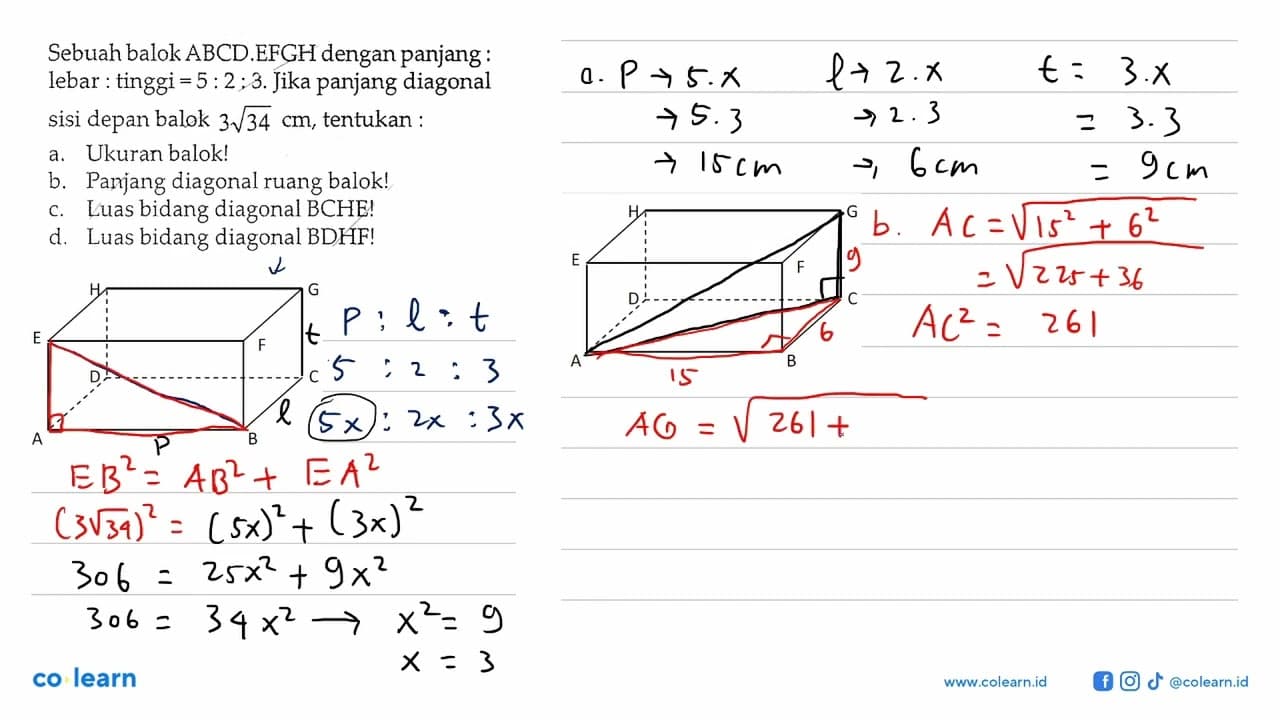 Sebuah balok ABCD.EFGH dengan panjang :
lebar : tinggi = 5 : 2 : 3. Jika panjang diagonal
sisi depan balok 3√34 cm, tentukan :
a. Ukuran balok!
b. Panjang diagonal ruang balok!
c. Luas bidang diagonal BCHE!
d. Luas bidang diagonal BDHF!
H G
E F
D C
A B
t
l
P
P : l : t
5 : 2 : 3
5x : 2x : 3x
EB² = AB² + EA²
(3√34)² = (5x)² + (3x)²
306 = 25x² + 9x²
306 = 34x² → x² = 9
x = 3
a. P → 5.x l → 2.x t = 3.x
→ 5.3 → 2.3 = 3.3
→ 15cm → 6cm = 9cm
H G
E F
D C
A B
9
6
15
b. AC = √15² + 6²
= √225 + 36
AC² = 261
AG = √261 +
co learn
www.colearn.id
@colearn.id